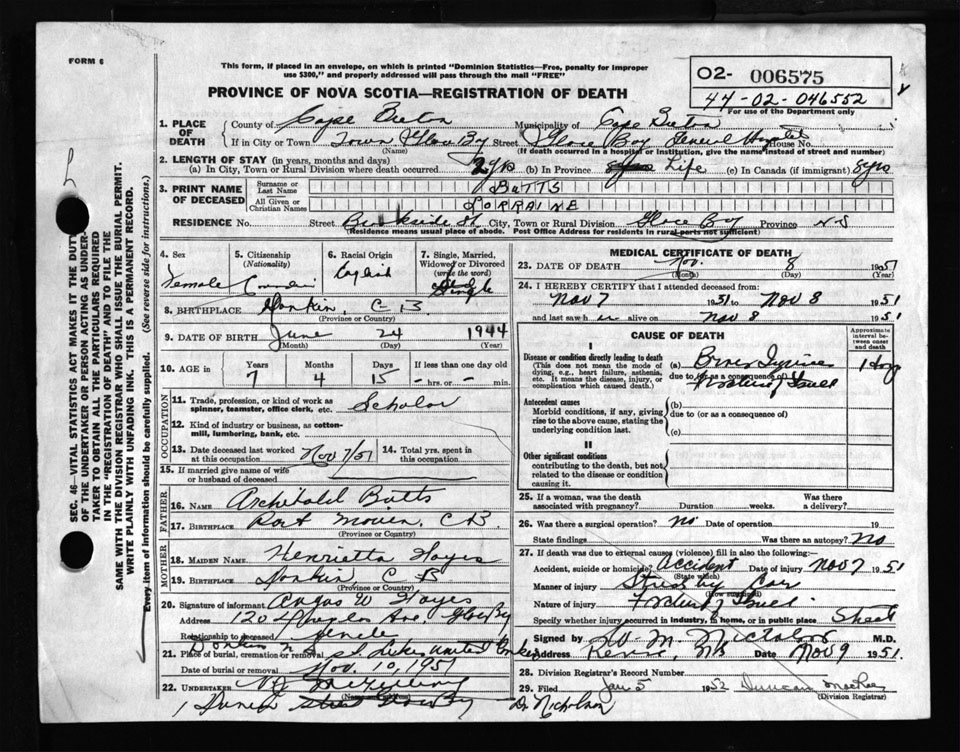 FORM 6
This form, if placed in an envelope, on which is printed "Dominion Statistics—Free, penalty for improper
use $300," and properly addressed will pass through the mail "FREE"
02- 006575
44-02-046552
For use of the Department only
PROVINCE OF NOVA SCOTIA—REGISTRATION OF DEATH
1. PLACE OF DEATH
County of Cape Breton Municipality of Cape Breton
If in City or Town Town Glace Bay Street Glace Bay General Hospital House No.
(Name) (If death occurred in a hospital or institution, give the name instead of street and number)
2. LENGTH OF STAY (in years, months and days)
(a) In City, Town or Rural Division where death occurred 2 yrs (b) In Province Life (c) In Canada (if immigrant)
3. PRINT NAME OF DECEASED
Surname or Last Name BUTTS
All Given or Christian Names LORRAINE
RESIDENCE No. Street Brookside St. City, Town or Rural Division Glace Bay Province N S
(Residence means usual place of abode. Post Office Address for residents in rural parts not sufficient)
4. Sex Female
5. Citizenship (Nationality) Canadian
6. Racial Origin English
7. Single, Married, Widowed or Divorced (write the word) Single
8. BIRTHPLACE Donkin, C-B
(Province or Country)
9. DATE OF BIRTH June 24 1944
(Month) (Day) (Year)
10. AGE in Years Months Days If less than one day old
7 4 15 - hrs. or - min.
OCCUPATION
11. Trade, profession, or kind of work as spinner, teamster, office clerk, etc. Scholar
12. Kind of industry or business, as cotton-mill, lumbering, bank, etc.
13. Date deceased last worked at this occupation Nov 7/51
14. Total yrs. spent in this occupation
15. If married give name of wife or husband of deceased
FATHER
16. NAME Archibald Butts
17. BIRTHPLACE Port Morien, CB
(Province or Country)
MOTHER
18. MAIDEN NAME Henrietta Hayes
19. BIRTHPLACE Donkin, C B
(Province or Country)
20. Signature of informant Angus W Hayes
Address 120 Douglas Ave Glace Bay
Relationship to deceased Uncle
21. Place of burial, cremation or removal Donkin N S St. Lukes United
Date of burial or removal Nov. 10, 1951
22. UNDERTAKER
(Name)
Glace Bay
Dr Nicholson
MEDICAL CERTIFICATE OF DEATH
23. DATE OF DEATH Nov. 8 1951
(Month) (Day)
24. I HEREBY CERTIFY that I attended deceased from:
Nov 7 1951 to Nov 8 1951
and last saw h er alive on Nov 8 1951
CAUSE OF DEATH
Approximate interval between onset and death
I
Disease or condition directly leading to death
(This does not mean the mode of dying, e.g., heart failure, asthenia, etc. It means the disease, injury, or complication which caused death.)
(a) Brain Injuries 1 day
due to (or as a consequence of)
Fractured Skull
Antecedent causes
Morbid conditions, if any, giving rise to the above cause, stating the underlying condition last.
(b)
due to (or as a consequence of)
(c)
II
Other significant conditions
contributing to the death, but not related to the disease or condition causing it.
25. If a woman, was the death associated with pregnancy? Duration weeks. Was there a delivery?
26. Was there a surgical operation? No Date of operation 19
State findings Was there an autopsy? No
27. If death was due to external causes (violence) fill in also the following:—
Accident, suicide or homicide? Accident Date of injury Nov 7 1951
(State which)
Manner of injury Struck by Car
(How sustained)
Nature of injury Fractured Skull
Specify whether injury occurred in industry, in home, or in public place Street
Signed by W. M. Nicholson M.D.
Address NS Date Nov 9 1951.
28. Division Registrar's Record Number
29. Filed Jan 5 1952 Duncan
(Division Registrar)
SEC. 46—VITAL STATISTICS ACT MAKES IT THE DUTY
OF THE UNDERTAKER OR PERSON ACTING AS UNDER-
TAKER TO OBTAIN ALL THE PARTICULARS REQUIRED
IN THE "REGISTRATION OF DEATH" AND TO FILE THE
SAME WITH THE DIVISION REGISTRAR WHO SHALL ISSUE THE BURIAL PERMIT.
WRITE PLAINLY WITH UNFADING INK. THIS IS A PERMANENT RECORD.
Every item of information should be carefully supplied. (See reverse side for instructions.)